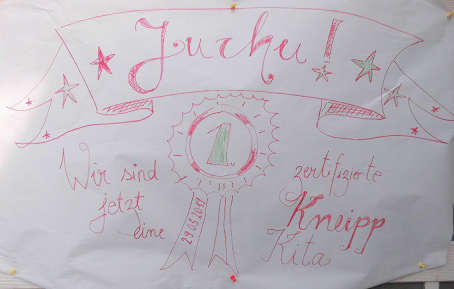 Juchu!
1.
29.03.2019
Wir sind
jetzt
eine
zertifizierte
Kneipp
Kita